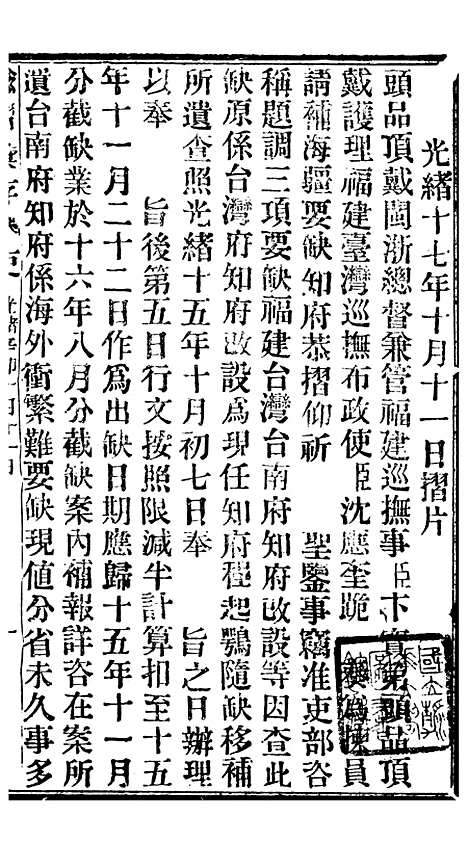 光緒十七年十月十一日摺片
頭品頂戴閩浙總督兼管福建巡撫事臣卞寶第頭品頂
戴護理福建臺灣巡撫布政使臣沈應奎跪奏爲揀員
請補海疆要缺知府恭摺仰祈 聖鑒事竊准吏部咨
稱題調三項要缺福建台灣台南府知府改設等因查此
缺原係台灣府知府改設爲現任知府程起鶚隨缺移補
所遺查照光緒十五年十月初七日奉 旨之日辦理
以奉 旨後第五日行文按照限減半計算扣至十五
年十一月二十二日作爲出缺日期應歸十五年十一月
分截缺業於十六年八月分截缺案內補報詳咨在案所
遺台南府知府係海外衝繁難要缺現値分省未久事多
一